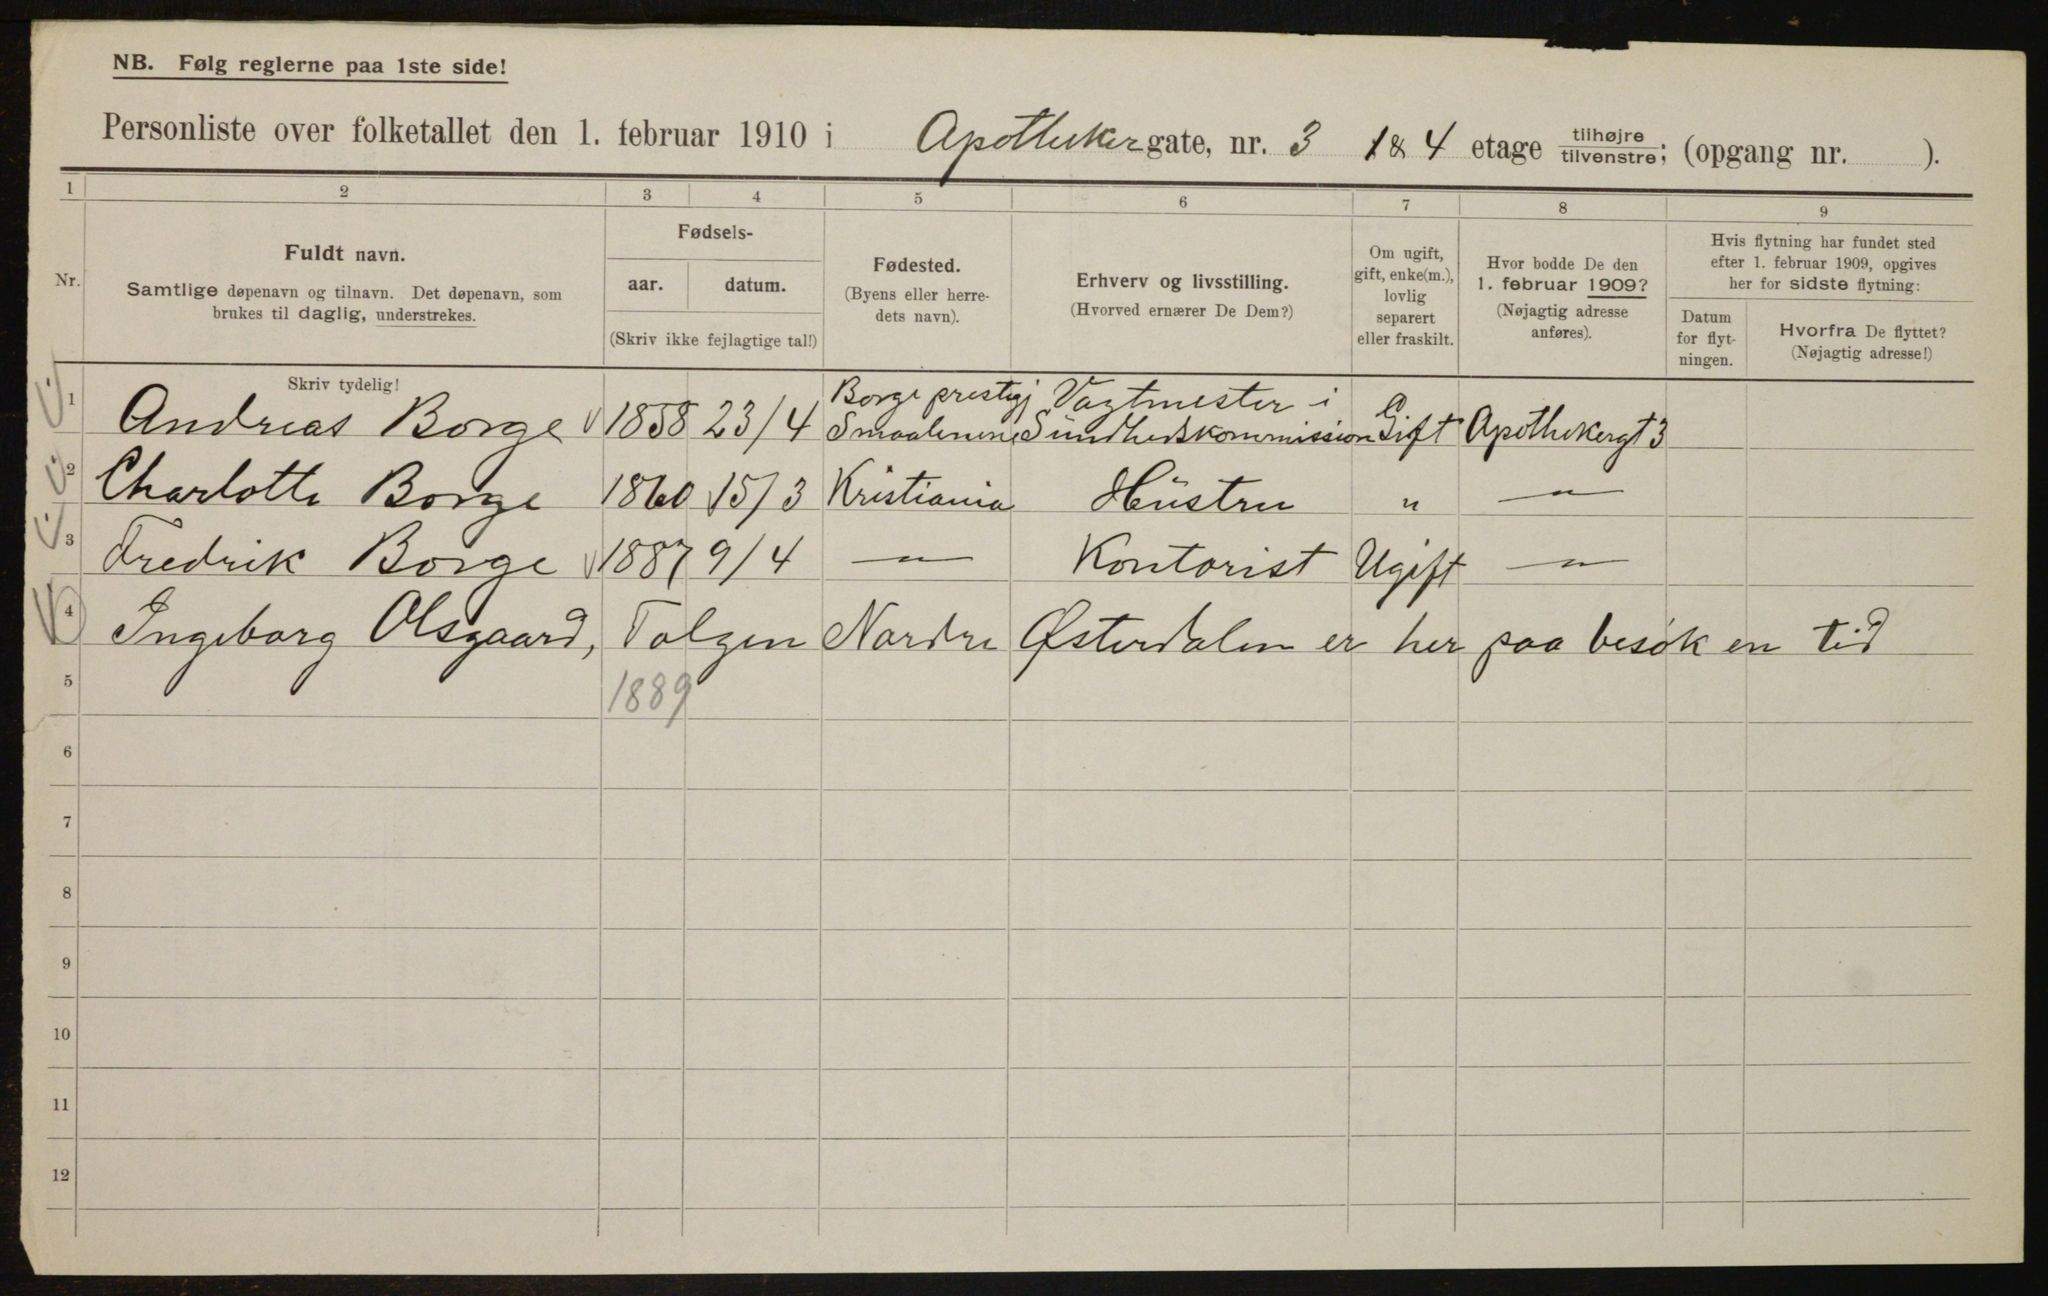 NB. Følg reglerne paa 1ste side!
Personliste over folketallet den 1. februar 1910 i Apothekergate, nr. 3 1 & 4 etage tilhøjre/tilvenstre; (opgang nr. ).
1 2 3 4 5 6 7 8 9
Nr.
Fuldt navn.
Samtlige døpenavn og tilnavn. Det døpenavn, som
brukes til daglig, understrekes.
Skriv tydelig!
Fødsels-
aar. datum.
(Skriv ikke fejlagtige tal!)
Fødested.
(Byens eller herre-
dets navn).
Erhverv og livsstilling.
(Hvorved ernærer De Dem?)
Om ugift,
gift, enke(m.),
lovlig
separert
eller fraskilt.
Hvor bodde De den
1. februar 1909?
(Nøjagtig adresse
anføres).
Hvis flytning har fundet sted
efter 1. februar 1909, opgives
her for sidste flytning:
Datum
for flyt-
ningen.
Hvorfra De flyttet?
(Nøjagtig adresse!)
Borge prestegj Vagtmester i
1 Andreas Borge 1858 23/4 Smaalenene Sundhedskommission Gift Apothekergt 3
2 Charlotte Borge 1860 15/3 Kristiania Hüstru " — " —
3 Fredrik Borge 1887 9/4 — " — Kontorist Ugift — " —
4 Ingeborg Olsgaard, Tolgen Nordre Østerdalen er her paa besøk en tid
5 1889
6
7
8
9
10
11
12